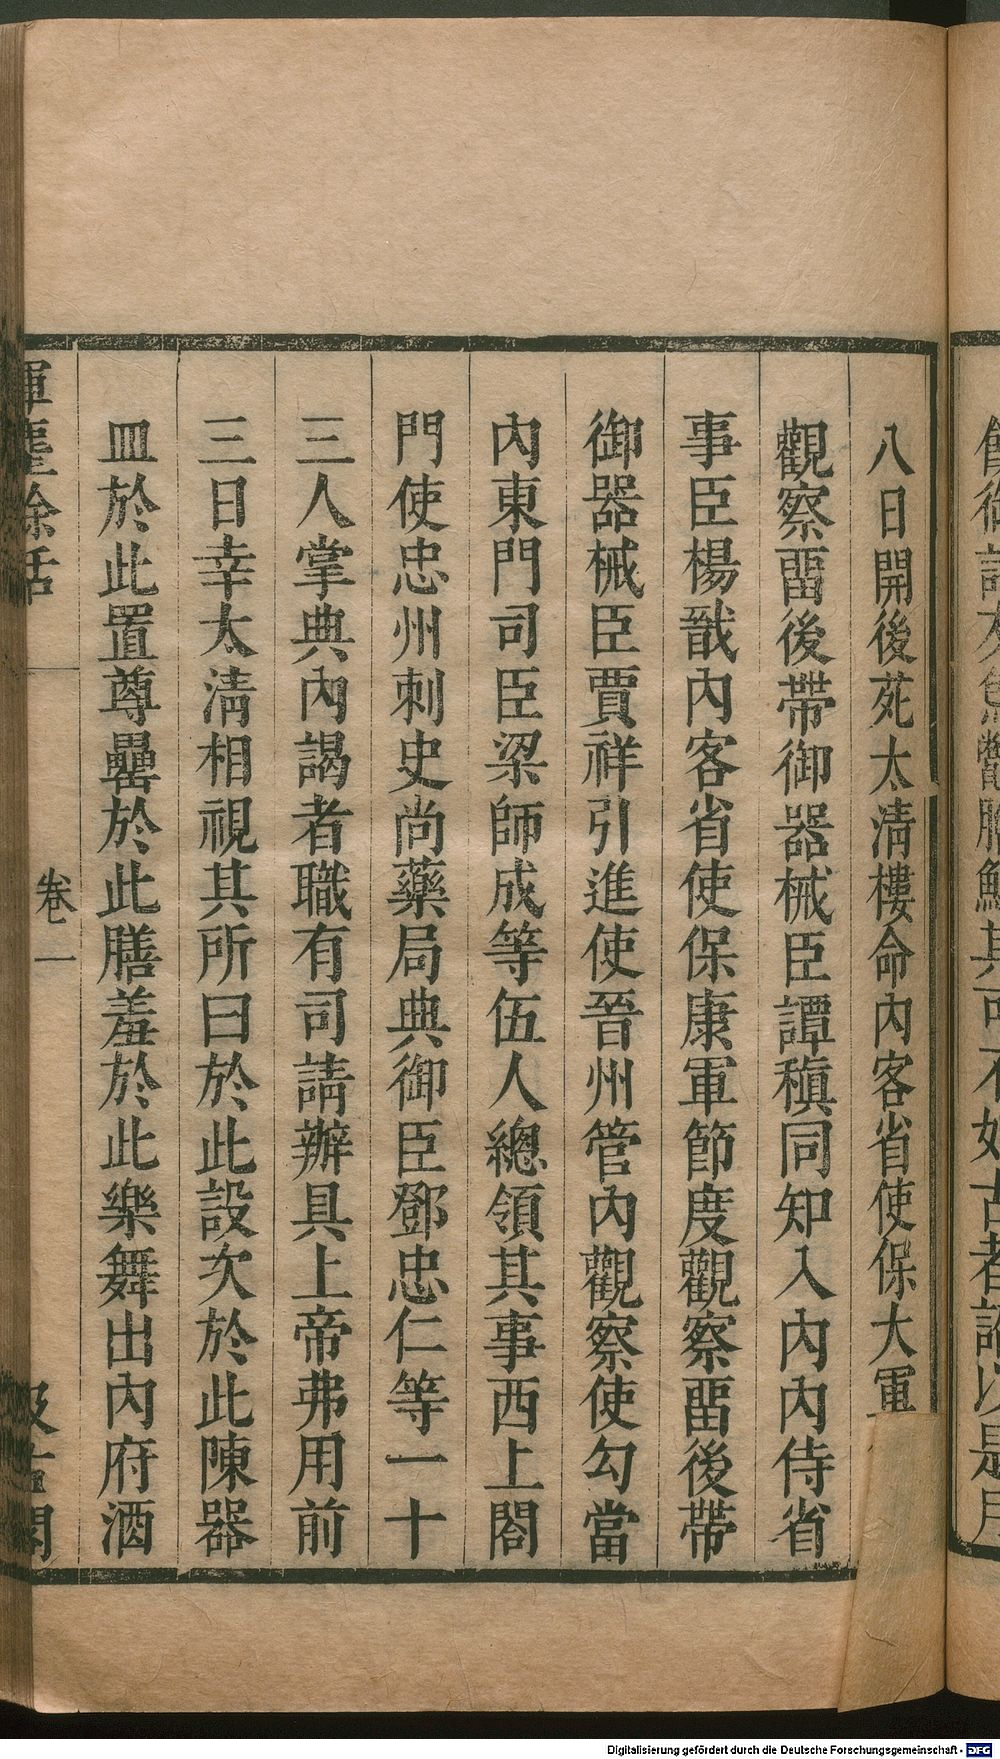 八日開後苑太淸樓命內客省使保大軍
觀察畱後帶御器械臣譚稹同知入內內侍省
事臣楊戩內客省使保康軍節度觀察畱後帶
御器械臣賈祥引進使晉州管內觀察使勾當
內東門司臣梁師成等伍人總領其事西上閤
門使忠州刺史尚藥局典御臣鄧忠仁等一十
三人掌典內謁者職有司請辦具上帝弗用前
三日幸太淸相視其所曰於此設次於此陳器
皿於此置尊罍於此膳羞於此樂舞出內府酒
揮麈餘話
卷一
汲古閣
Digitalisierung gefördert durch die Deutsche Forschungsgemeinschaft - DFG